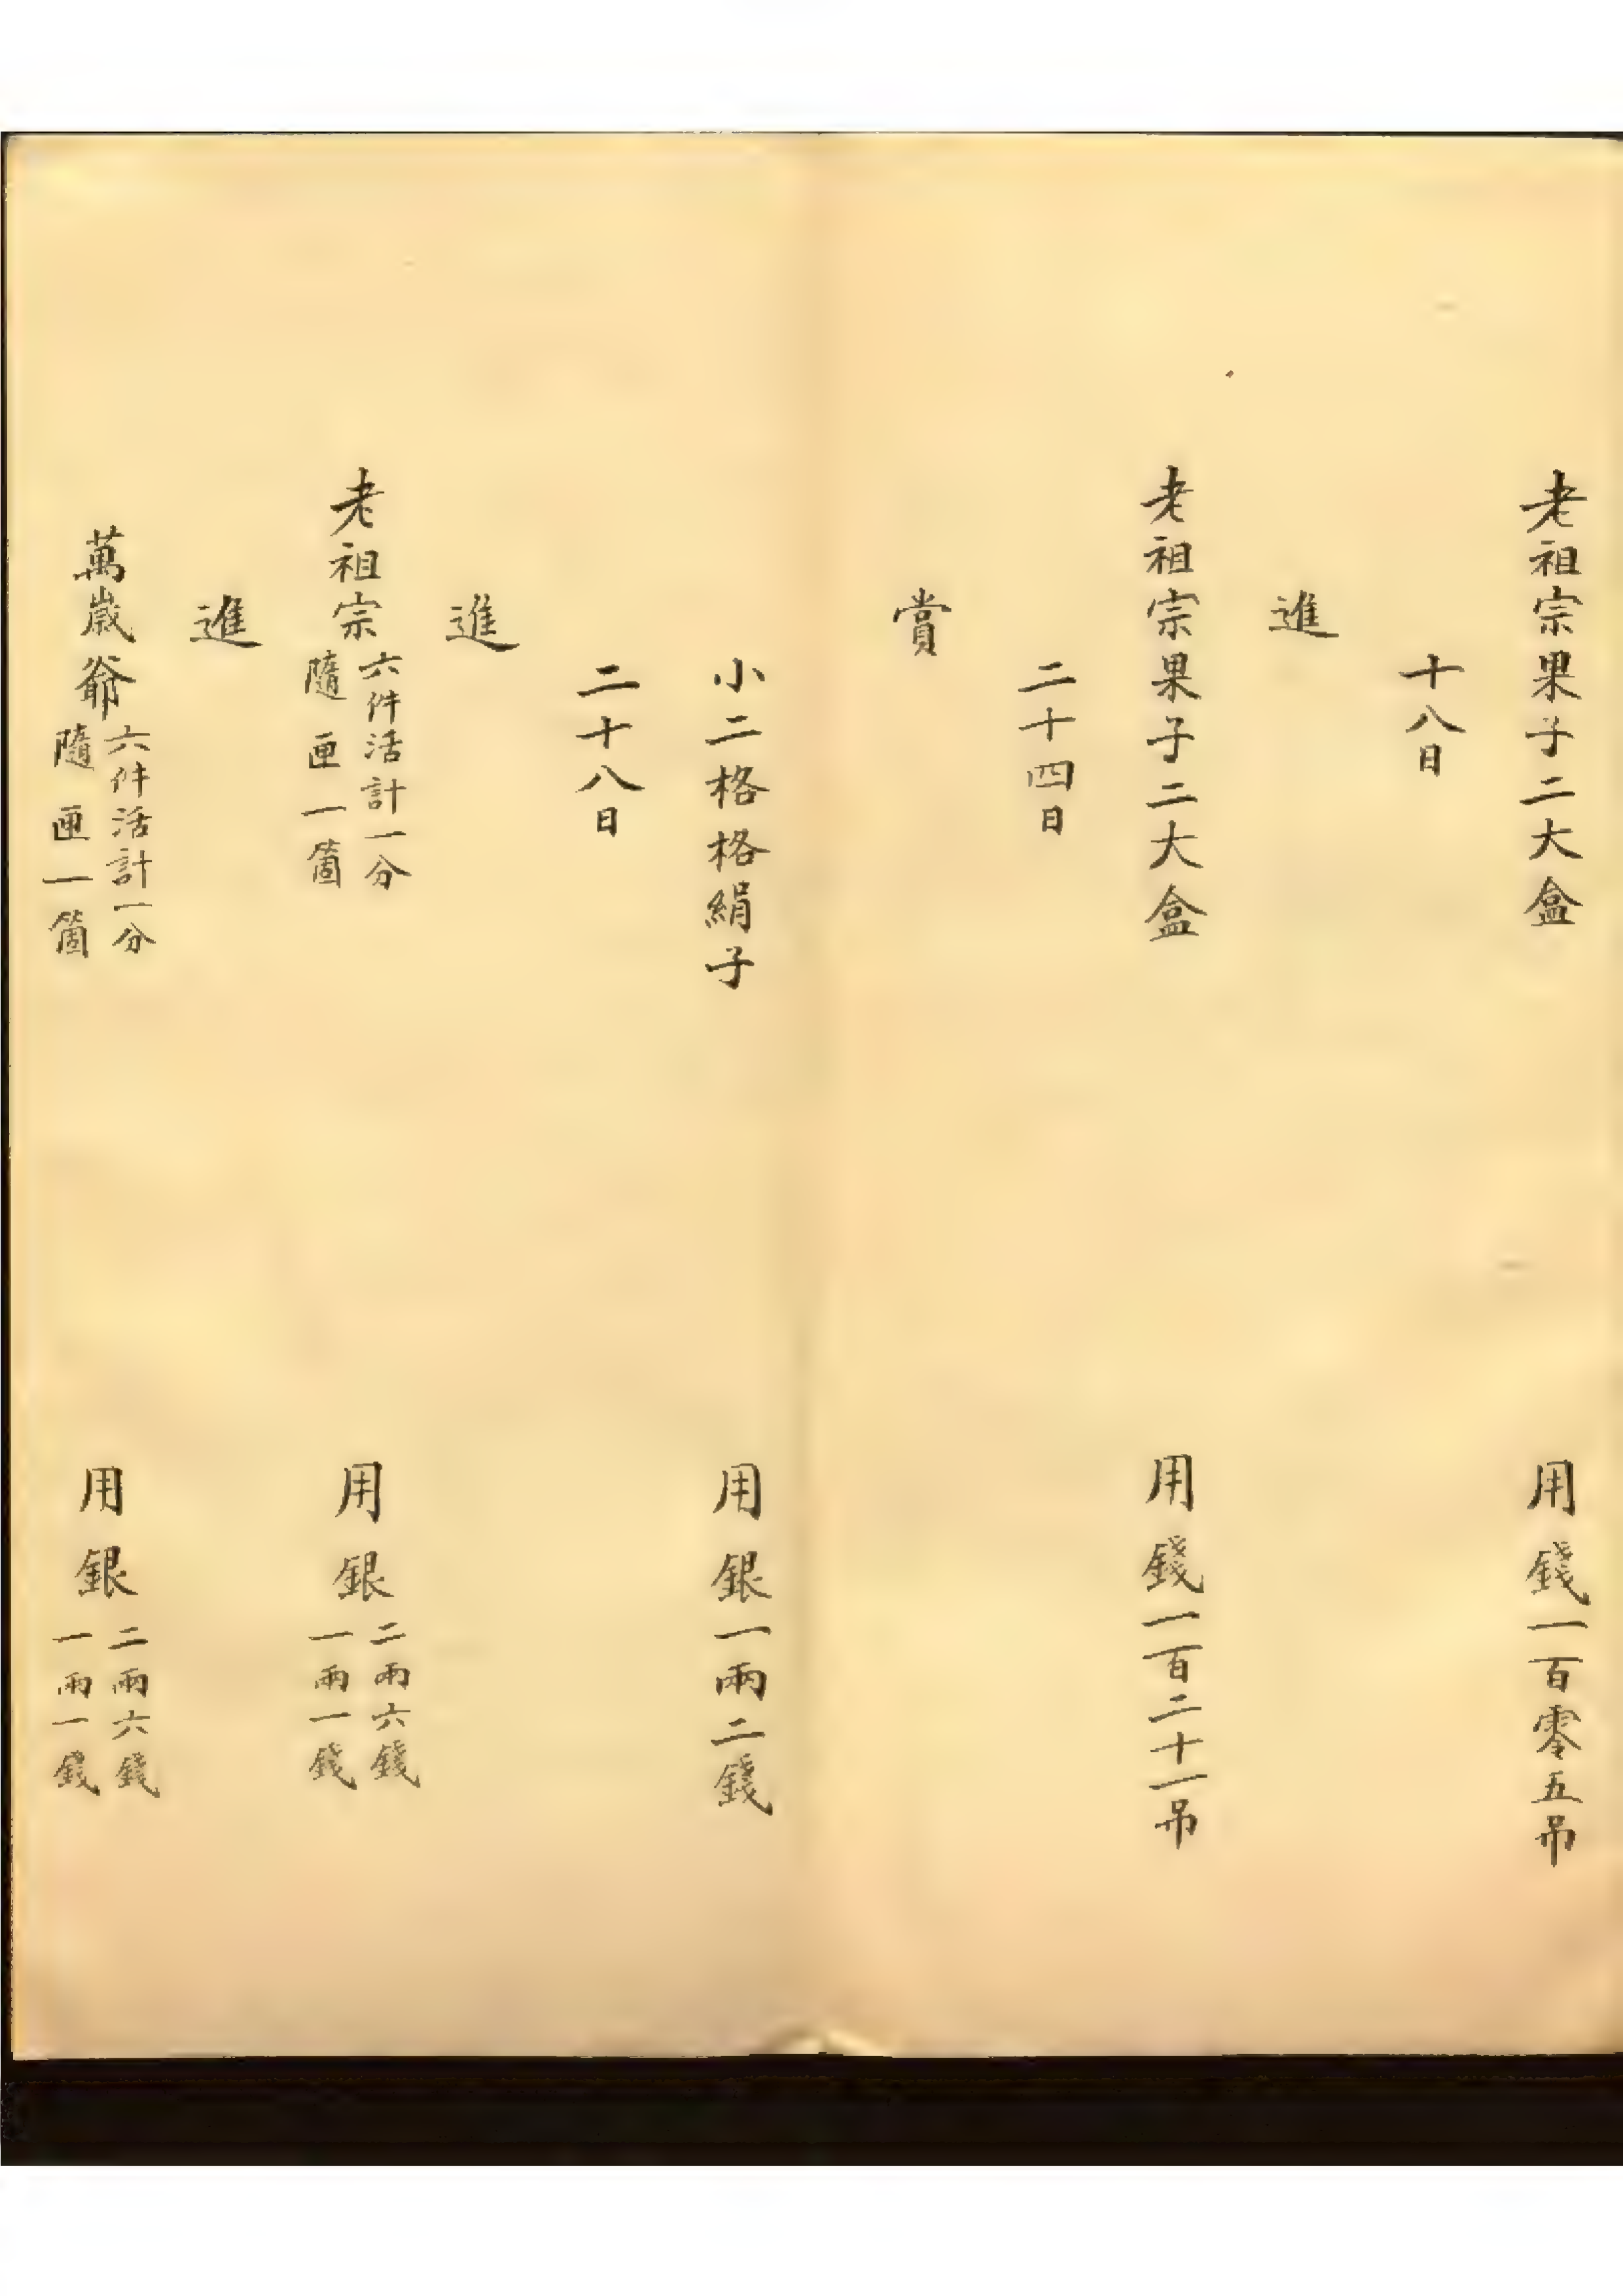 老祖宗果子二大盒 用錢一百零五吊
十八日
進
老祖宗果子二大盒 用錢一百二十一吊
二十四日
賞
小二格格絹子 用銀一兩二錢
二十八日
進
老祖宗 六件活計一分 隨匣一箇 用銀 二兩六錢 一兩一錢
進
萬歲爺 六件活計一分 隨匣一箇 用銀 二兩六錢 一兩一錢